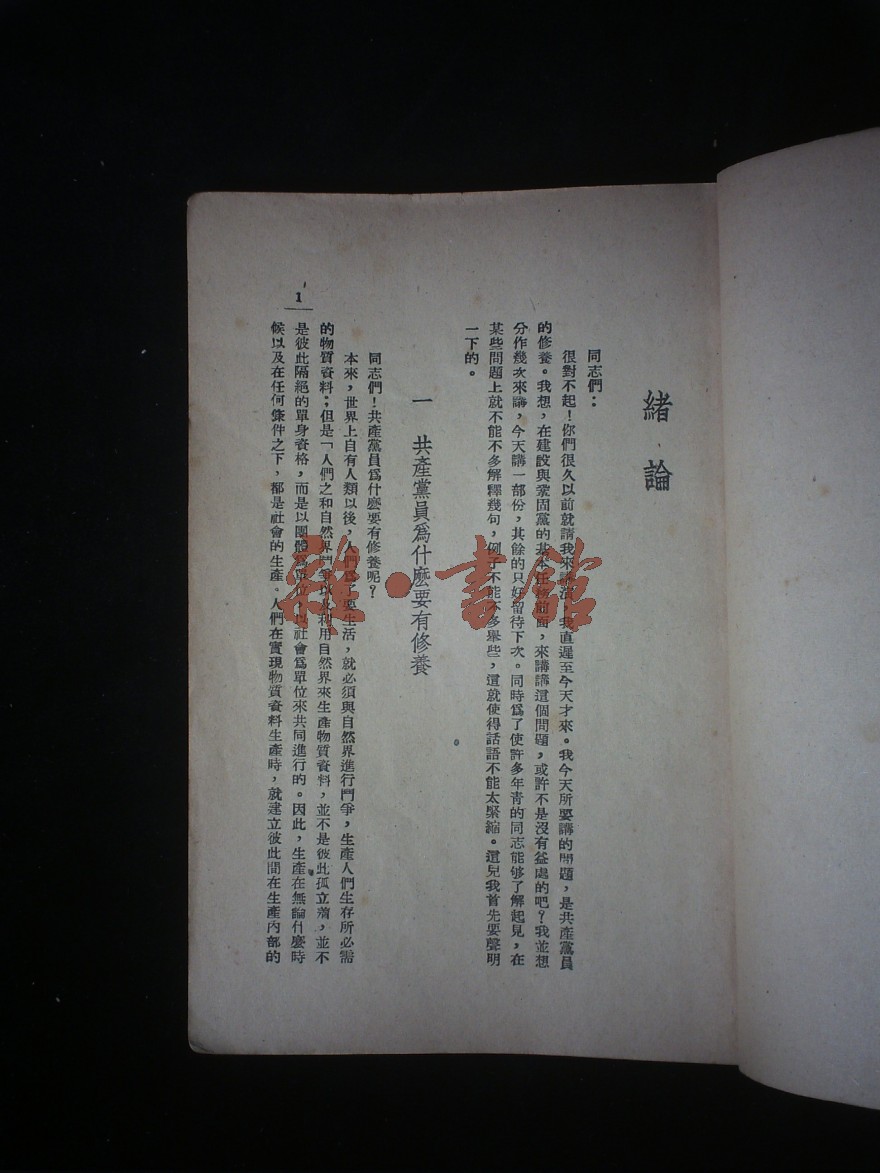 緒論
同志們：
很對不起！你們很久以前就請我來講演，我直遲至今天才來。我今天所要講的問題，是共產黨員
的修養。我想，在建設與鞏固黨的基本任務前面，來講講這個問題，或許不是沒有益處的吧？我並想
分作幾次來講，今天講一部份，其餘的只好留待下次。同時爲了使許多年靑的同志能够了解起見，在
某些問題上就不能不多解釋幾句，例子不能不多舉些，這就使得話語不能太緊縮。這兒我首先要聲明
一下的。
一 共產黨員爲什麽要有修養
同志們！共產黨員爲什麽要有修養呢？
本來，世界上自有人類以後，人們爲了要生活，就必須與自然界進行鬥爭，生產人們生存所必需
的物質資料；但是「人們之和自然界鬥爭以及利用自然界來生產物質資料，並不是彼此孤立着，並不
是彼此隔絕的單身資格，而是以團體爲單位，以社會爲單位來共同進行的。因此，生產在無論什麽時
候以及在任何條件之下，都是社會的生產。人們在實現物質資料生產時，就建立彼此間在生產內部的
1
雜·書館